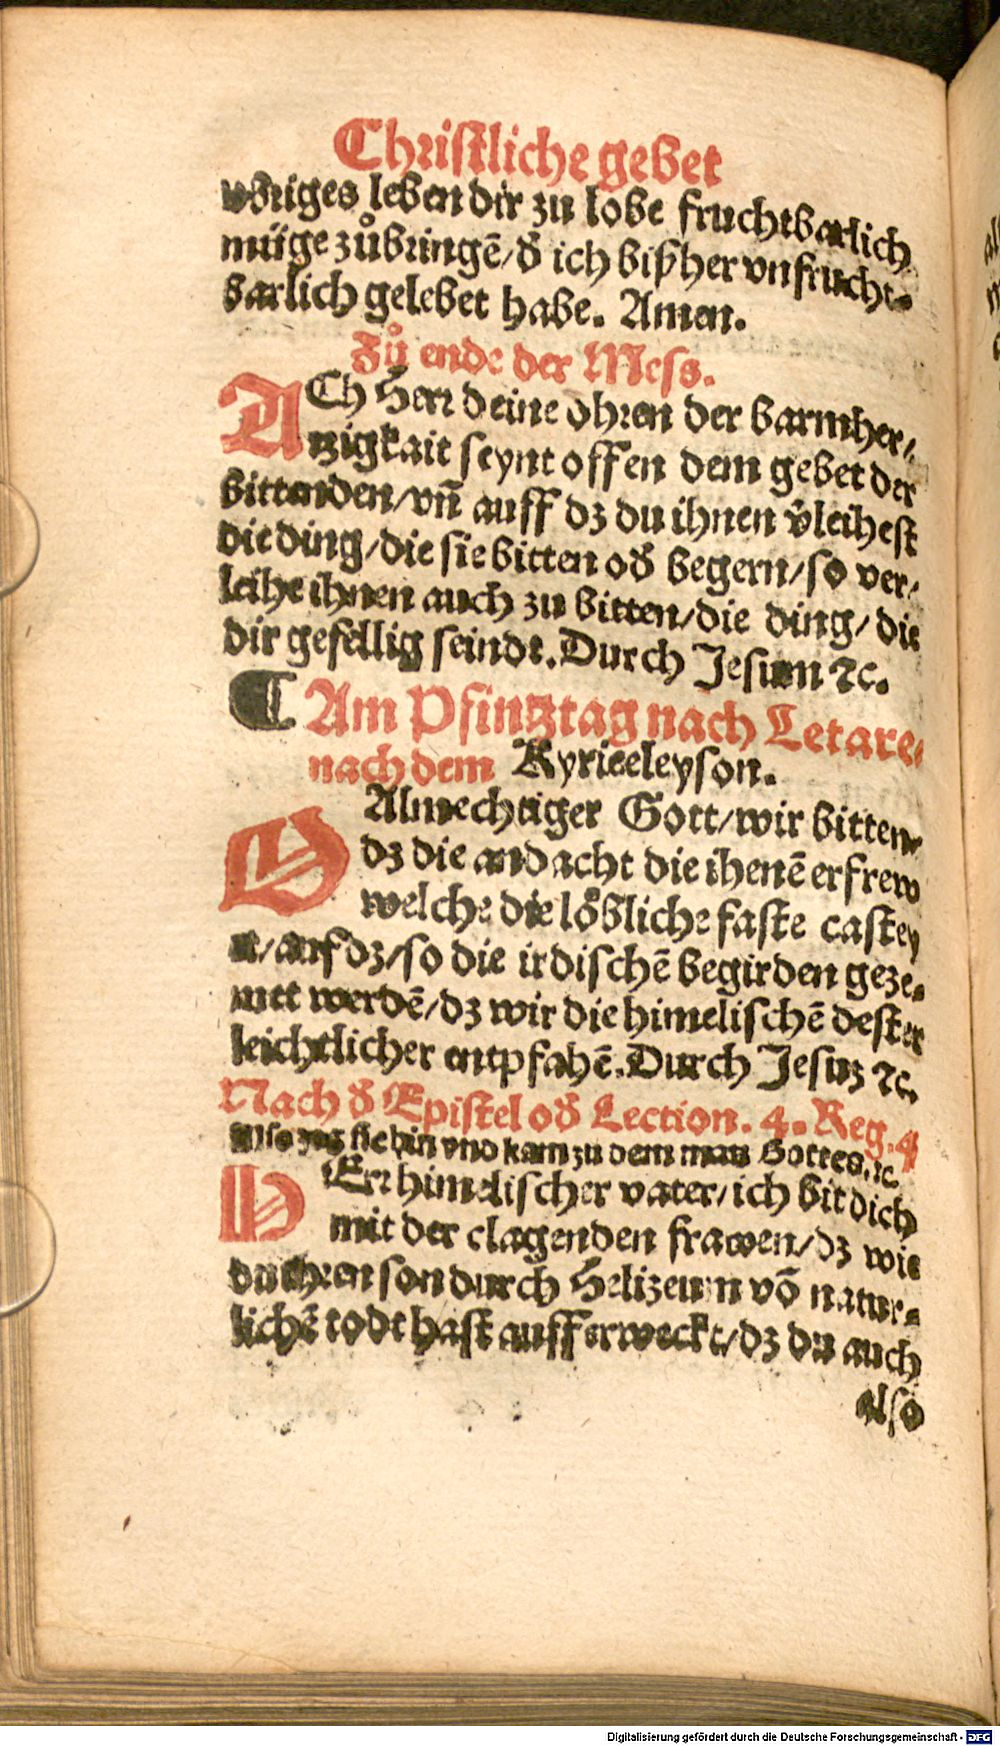 Christliche gebet
vbriges leben dir zu lobe fruchtbarlich
müge zůbringē/ď ich bißher vnfrucht-
barlich gelebet habe. Amen.
Zů ende der Mess.
ACh Herr deine ohren der barmher/
tzigkait seynt offen dem gebet der
bittenden/vñ auff dz du ihnen v̓leihest
die ding/die sie bitten oď begern/so ver/
leihe ihnen auch zu bitten/die ding/die
dir gefellig seindt. Durch Jesum ꝛc.
¶ Am Pfintztag nach Letare/
nach dem Kyrieeleyson.
O Almechtiger Gott/wir bitten/
dz die andacht die ihenē erfrew
welche die lo᷑bliche faste castey
n/auf dz/so die irdischē begirden geze-
mtt werdē/dz wir die himelischē dester
leichtlicher entpfahē. Durch Jesuz ꝛc.
Nach ď Epistel oď Lection. 4. Reg. 4
Also zog sie hin vnd kam zu dem man Gottes. ꝛc.
HErr himelischer vater/ich bit dich
mit der clagenden frawen/dz wie
du ihren son durch Helizeum vō natur-
lichē todt hast aufferweckt/dz du auch
also
Digitalisierung gefördert durch die Deutsche Forschungsgemeinschaft - DFG